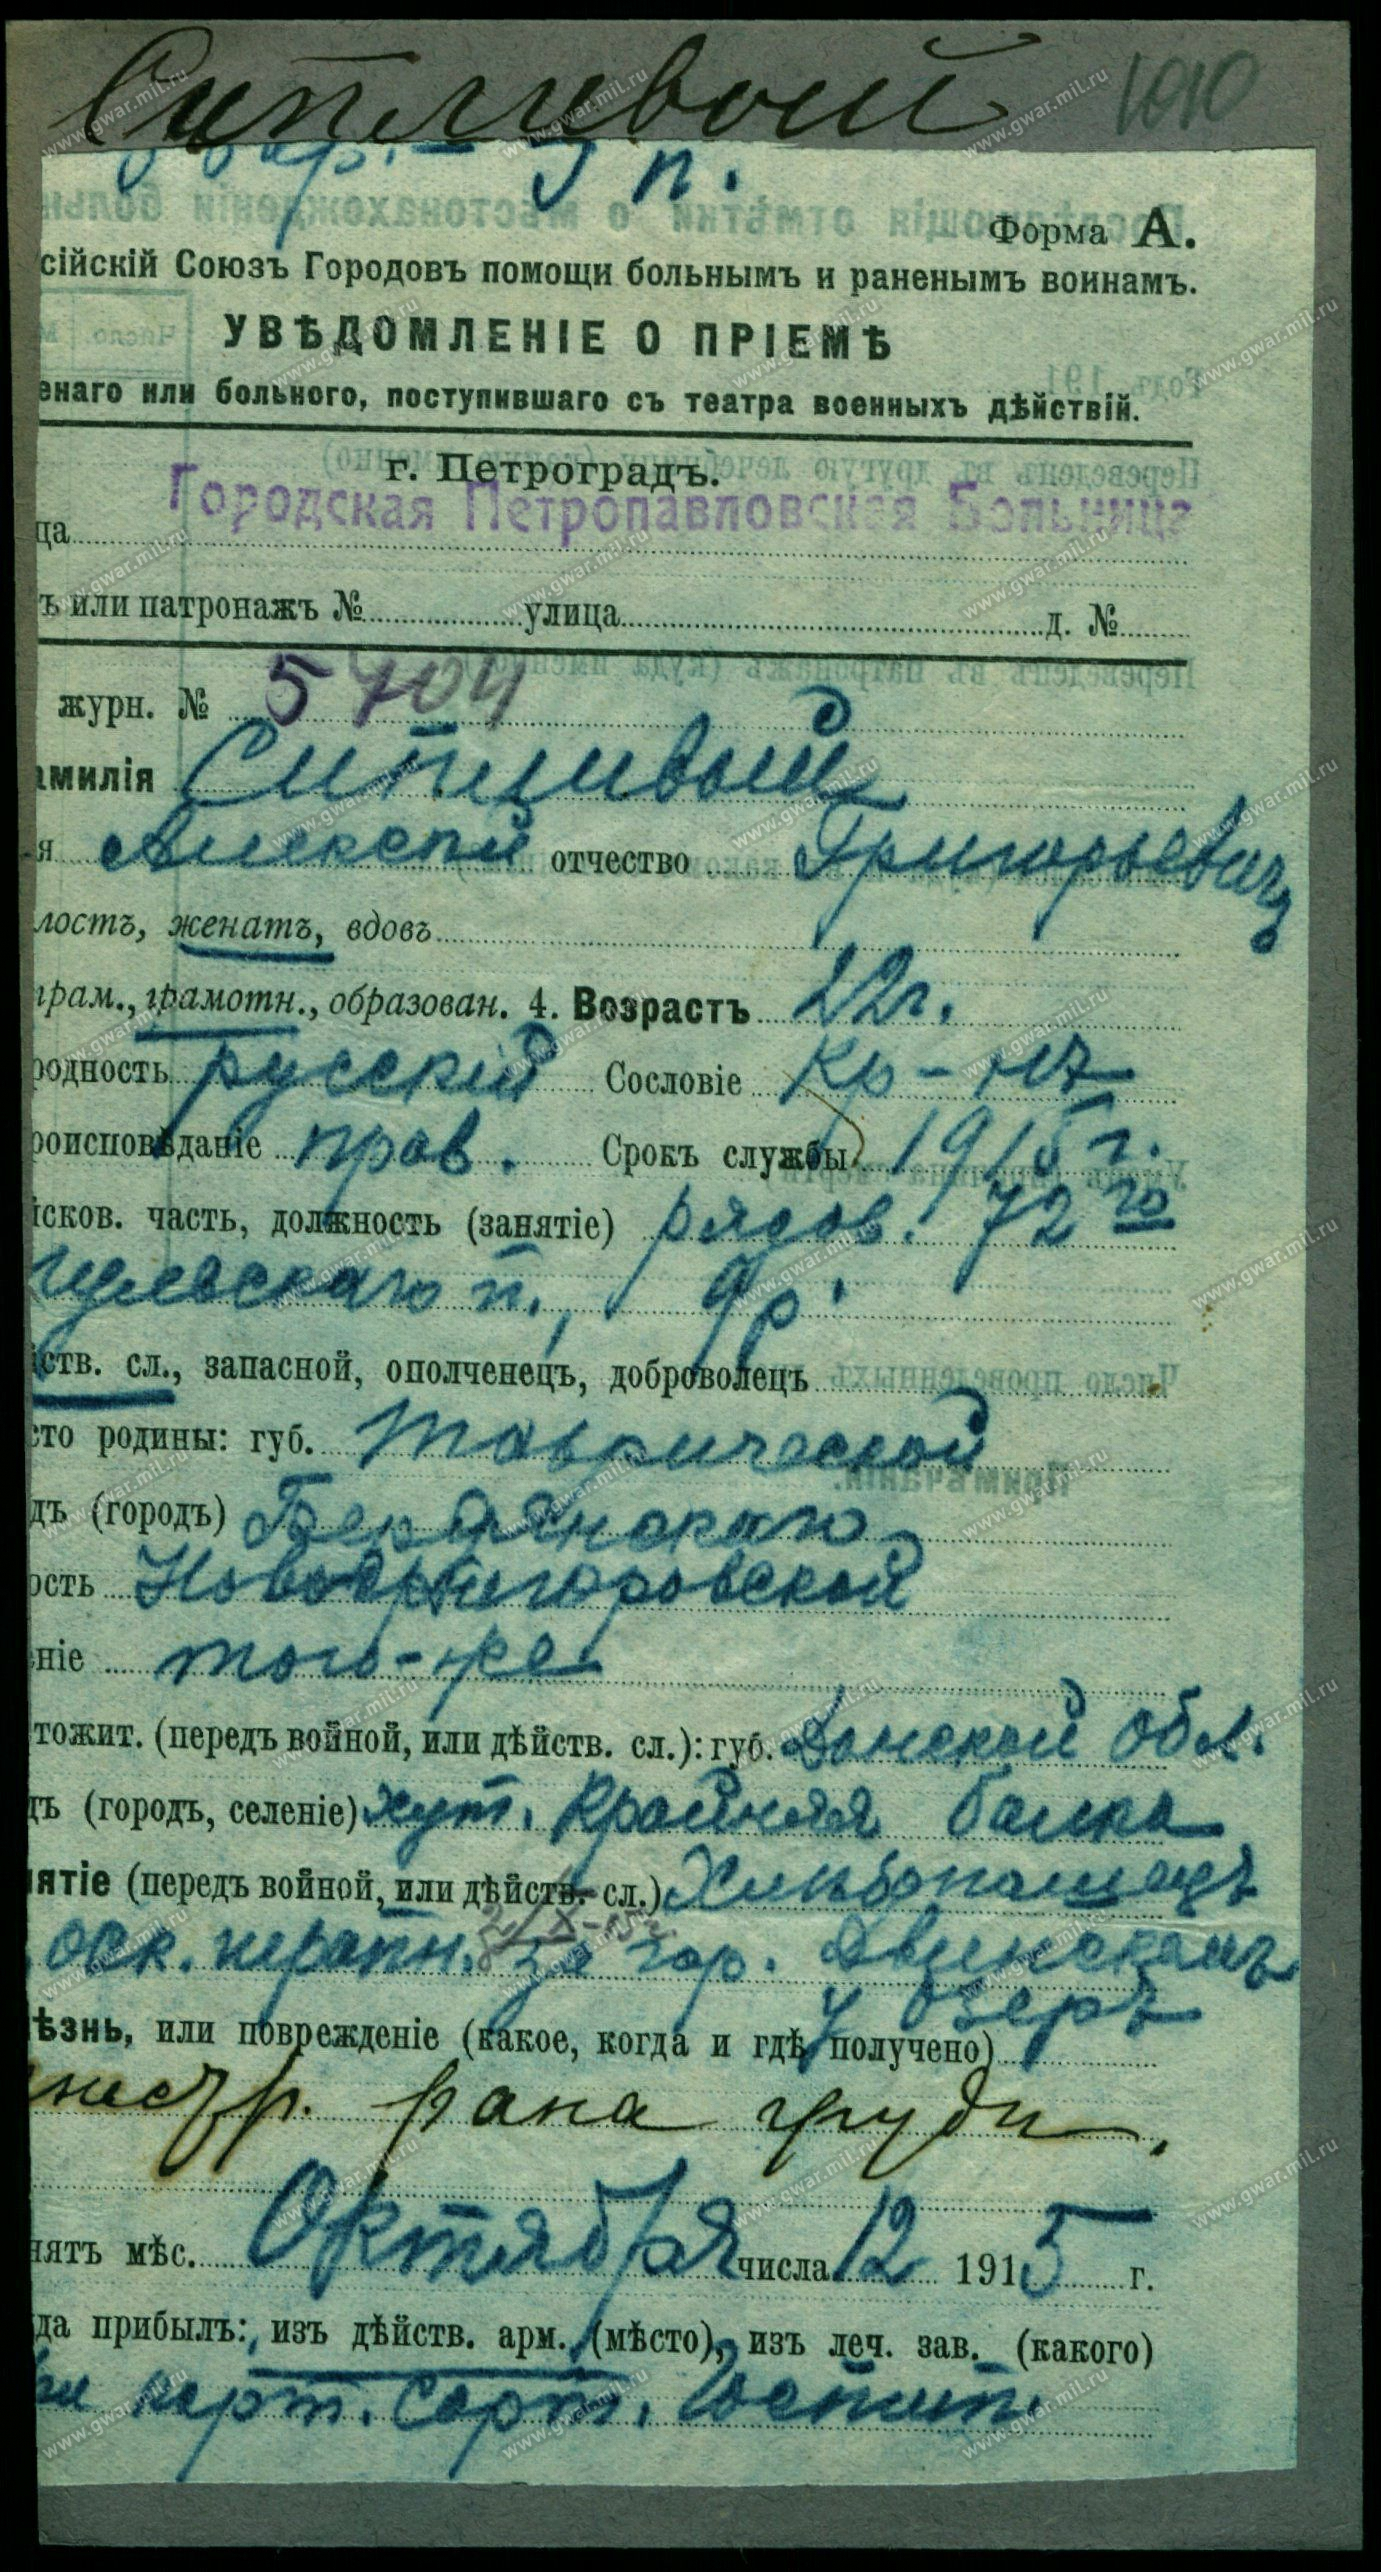 Сипливый 1010
п.
Форма А.
сійскій Союзъ Городовъ помощи больнымъ и раненымъ воинамъ.
УВѢДОМЛЕНІЕ О ПРІЕМѢ
енаго или больного, поступившаго съ театра военныхъ дѣйствій.
г. Петроградъ.
Городская Петропавловская Больница
ца
ъ или патронажъ № улица д. №
журн. № 5704
амилія Сипливый
я Алексѣй отчество Григорьевич
лостъ, женатъ, вдовъ
грам., грамотн., образован. 4. Возрастъ 22 г.
родность русскій Сословіе кр-нъ
роисповѣданіе прав. Срокъ службы 1915 г.
йсков. часть, должность (занятіе) рядов. 72го
п., 9 р.
йств. сл., запасной, ополченецъ, доброволецъ
сто родины: губ. Таврической
дъ (городъ) Бердянскаго
ость Новогригоровской
ніе того-же
тожит. (передъ войной, или дѣйств. сл.): губ. Донской обл.
дъ (городъ, селеніе) хут. Крайняя балка
нятіе (передъ войной, или дѣйств. сл.) Хлѣбопашецъ
оск. шрапн. за гор. Двинскомъ
у озеръ
ѣзнь, или поврежденіе (какое, когда и гдѣ получено)
рана груди.
нятъ мѣс. Октября числа 12 1915 г.
да прибылъ: изъ дѣйств. арм. (мѣсто), изъ леч. зав. (какого)
Сорт. Госпит.
www.gwar.mil.ru